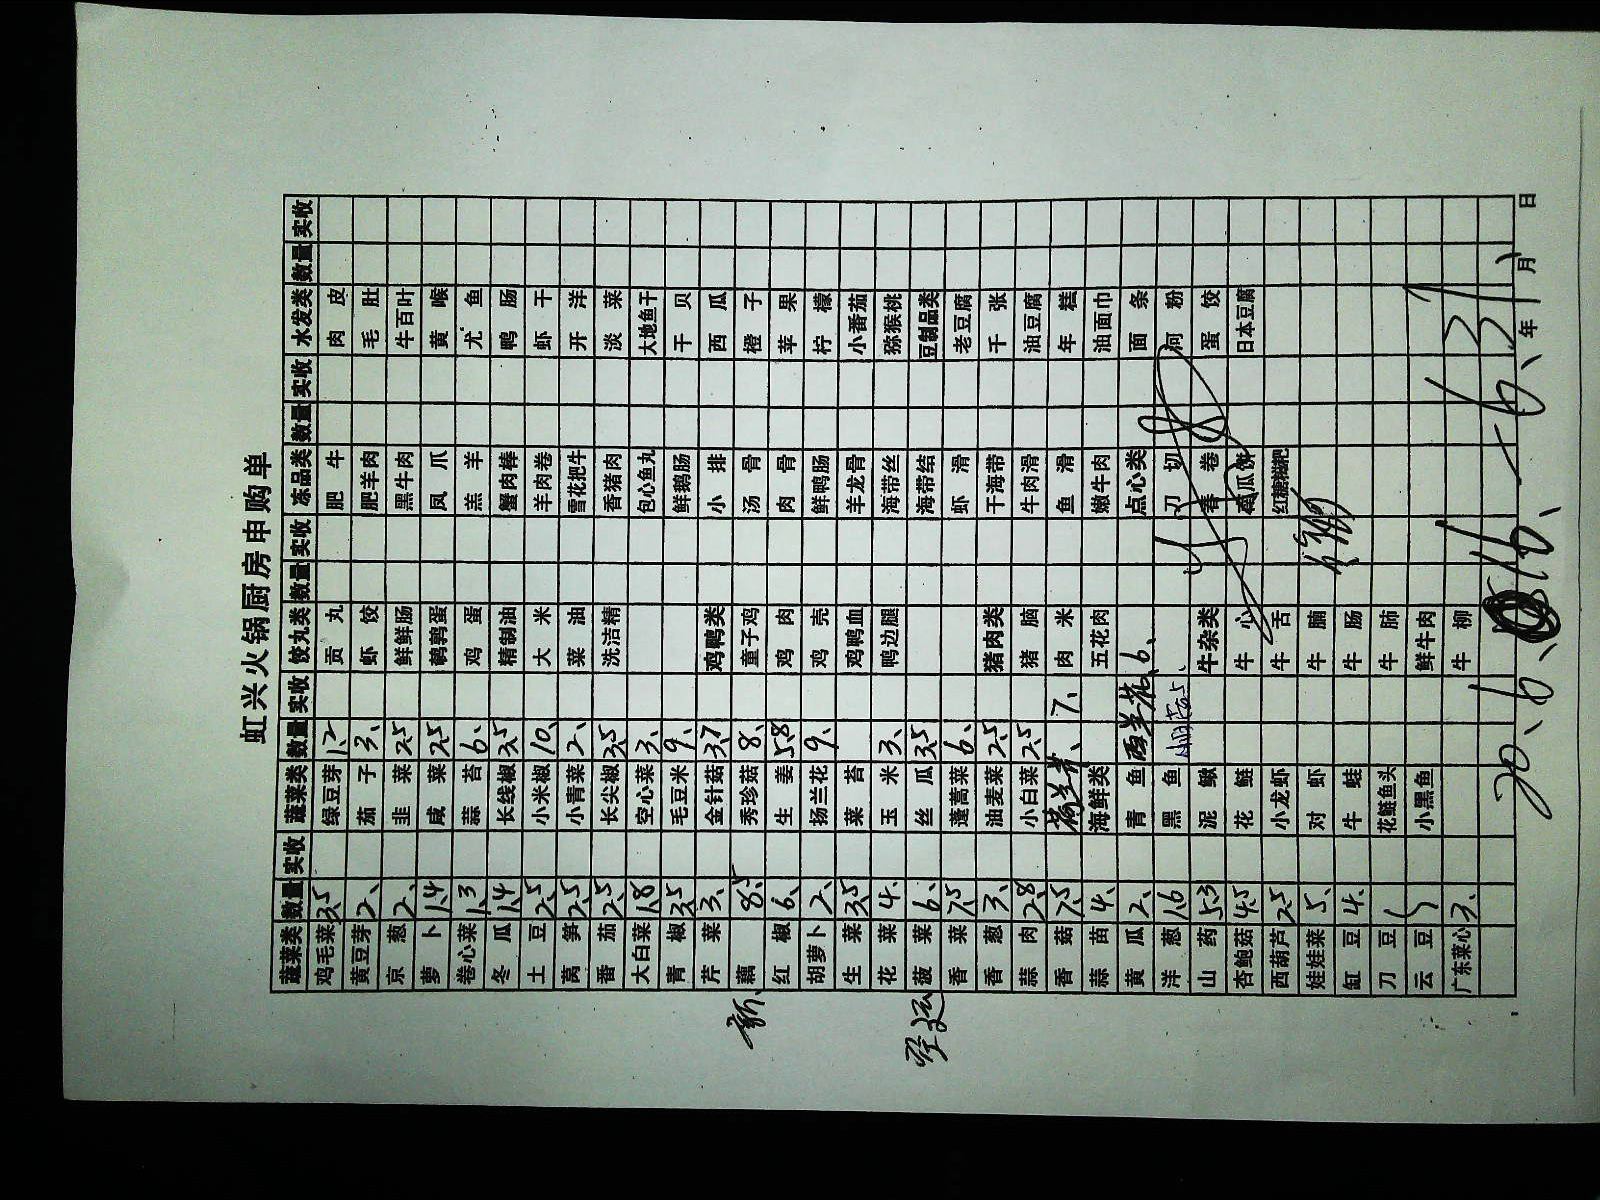 虹兴火锅厨房申购单
蔬菜类 数量 实收 蔬菜类 数量 实收 饺丸类 数量 实收 冻品类 数量 实收 水发类 数量 实收
鸡毛菜 3.5 绿豆芽 1.2 贡丸 肥牛 肉皮
黄豆芽 2、 茄子 3、 虾饺 肥羊肉 毛肚
京葱 2、 韭菜 2.5 鲜鲜肠 黑牛肉 牛百叶
萝卜 1.4 咸菜 2.5 鹌鹑蛋 凤爪 黄喉
卷心菜 1.3 蒜苔 6、 鸡蛋 羔羊 尤鱼
冬瓜 1.4 长线椒 3.5 精制油 蟹肉棒 鸭肠
土豆 2.5 小米椒 10、 大米 羊肉卷 虾干
莴笋 2.5 小青菜 2、 菜油 雪花把牛 开洋
番茄 2.5 长尖椒 3.5 洗洁精 香猪肉 淡菜
大白菜 1.8 空心菜 3、 包心鱼丸 大地鱼干
青椒 3.5 毛豆米 9、 鲜鹅肠 干贝
芹菜 3、 金针菇 3.7 鸡鸭类 小排 西瓜
新、 藕 8.5 秀珍菇 8、 童子鸡 汤骨 橙子
红椒 6、 生姜 5.8 鸡肉 肉骨 苹果
胡萝卜 2、 扬兰花 9、 鸡壳 鲜鸭肠 柠檬
生菜 3.5 菜苔 鸡鸭血 羊龙骨 小番茄
花菜 4、 玉米 3、 鸭边腿 海带丝 猕猴桃
菠菜 6、 丝瓜 3.5 海带结 豆制品类
香菜 7.5 蓬蒿菜 6、 虾滑 老豆腐
香葱 3、 油麦菜 2.5 猪肉类 干海带 千张
蒜肉 2.8 小白菜 2.5 猪脑 牛肉滑 油豆腐
香菇 7.5 7、 肉米 鱼滑 年糕
蒜苗 4、 海鲜类 五花肉 嫩牛肉 油面巾
黄瓜 2、 青鱼 西兰花、6、 点心类 面条
洋葱 1.6 黑鱼 刀切 河粉
山药 5.3 泥鳅 牛杂类 春卷 蛋饺
杏鲍菇 4.5 花鲢 牛心 南瓜饼 日本豆腐
西葫芦 2.5 小龙虾 牛舌 红糖糍粑
娃娃菜 5、 对虾 牛腩
缸豆 4、 牛蛙 牛肠
刀豆 花鲢鱼头 牛肺
云豆 小黑鱼 鲜牛肉
广东菜心 3、 牛柳
20、6、16、—6、31、
年 月 日